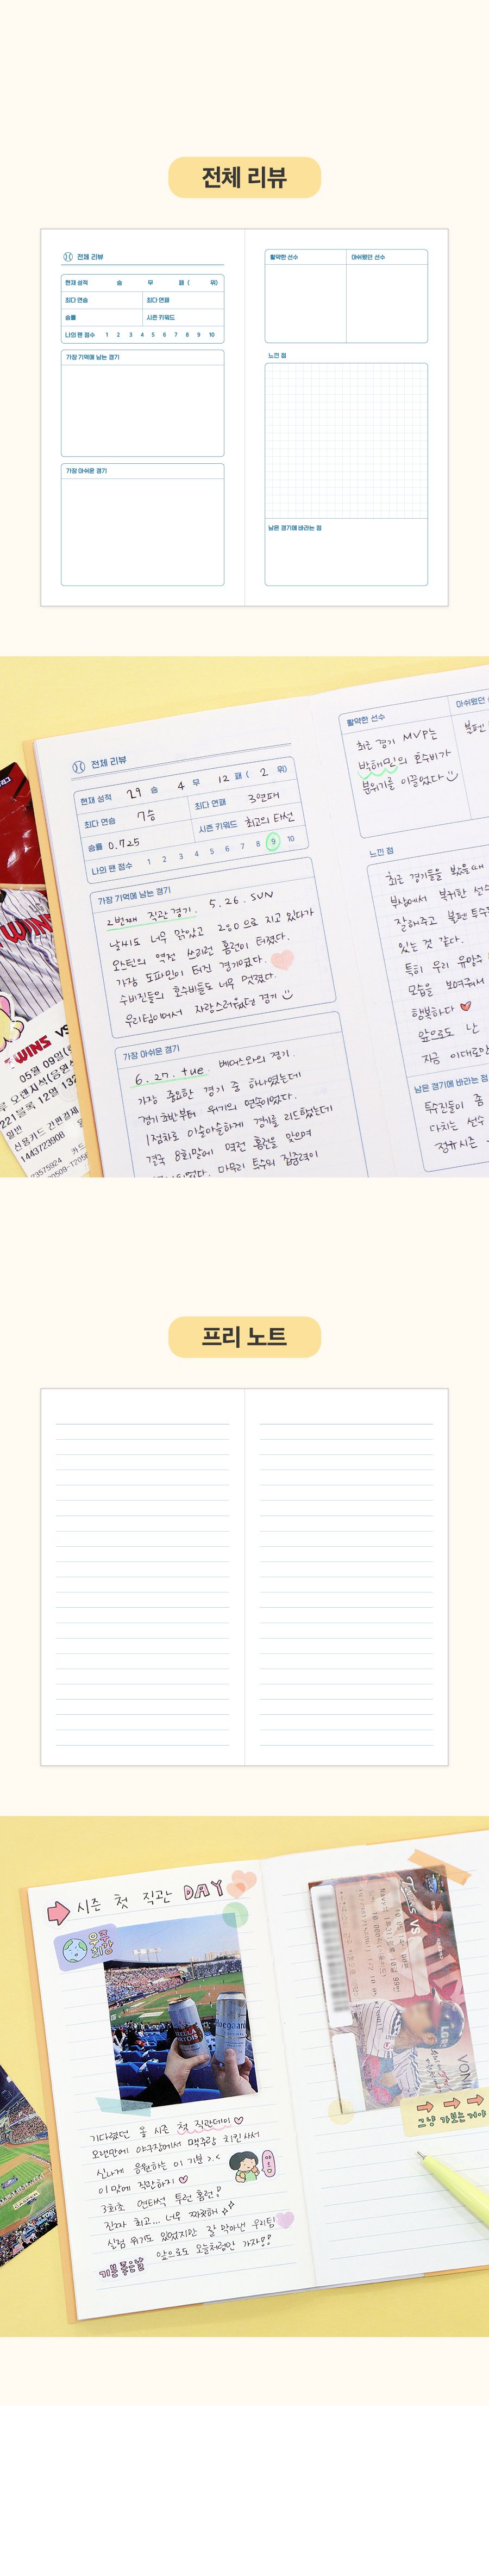 전체 리뷰
전체 리뷰
현재 성적 승 무 패 ( 위)
최다 연승 최다 연패
승률 시즌 키워드
나의 팬 점수 1 2 3 4 5 6 7 8 9 10
가장 기억에 남는 경기
가장 아쉬운 경기
활약한 선수 아쉬웠던 선수
느낀 점
남은 경기에 바라는 점
전체 리뷰
현재 성적 29 승 4 무 12 패 ( 2 위)
최다 연승 7승 최다 연패 3연패
승률 0.725 시즌 키워드 최고의 타선
나의 팬 점수 1 2 3 4 5 6 7 8 9 10
가장 기억에 남는 경기
2번째 직관 경기. 5.26. SUN
날씨도 너무 맑았고 2:0으로 지고 있다가
오스틴의 역전 쓰리런 홈런이 터졌다.
가장 도파민이 터진 경기였다.
수비진들의 호수비들도 너무 멋졌다.
우리팀이여서 자랑스러웠던 경기
가장 아쉬운 경기
6.27. tue. 베어스와의 경기.
가장 중요한 경기 중 하나였는데
경기 초반부터 위기의 연속이였다.
1점차로 아슬아슬하게 경기를 리드했는데
결국 8회말에 역전 홈런을 맞으며
마무리 투수의 집중력이
활약한 선수
최근 경기 MVP는
박해민의 호수비가
분위기를 이끌었다
느낀 점
최근 경기들을 봤을때
부상에서 복귀한 선수
잘해주고 불펜 투수
있는 것 같다.
특히 우리 유망주
모습을 보여줘서
행복하다
앞으로도 난
지금 이대로만
남은 경기에 바라는 점
투수진들이 좀
다치는 선수
정규시즌
WINS VS
05월 09일
신용카드 간편결제
1443723908
프리 노트
시즌 첫 직관 DAY
우주최강
기다렸던 올 시즌 첫 직관데이
오랜만에 야구장에서 맥주랑 치킨 사서
신나게 응원하는 이 기분 >.<
이 맛에 직관하지
3회초 연타석 투런 홈런!
진짜 최고... 너무 짜릿해
실점 위기도 있었지만 잘 막아낸 우리팀
앞으로도 오늘처럼만 가자!!
기분 좋은 날
그냥 가보는거야